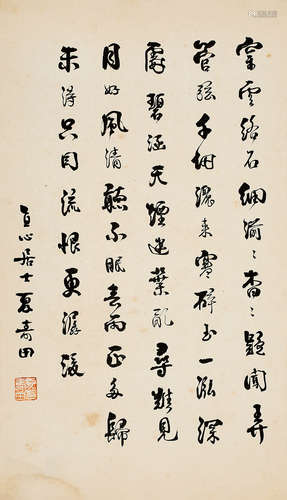 穿雲絡石細濺々杳々疑聞弄
管弦千仞灑來寒碎玉一泓深
處碧涵天煙迷葉亂尋難見
月好風清聽不眠春雨正多歸
未得只因流恨更潺湲
直心居士夏壽田